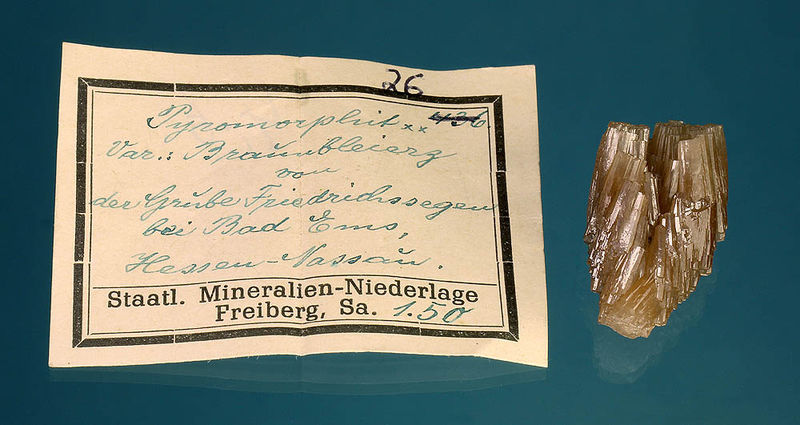 26
Pyromorphit xx 436
Var.: Braunbleierz
von
der Grube Friedrichssegen
bei Bad Ems,
Hessen-Nassau.
Staatl. Mineralien-Niederlage
Freiberg, Sa. 1.50